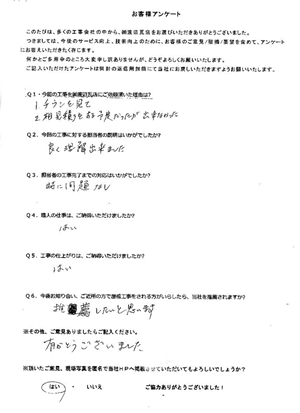 お客様アンケート
このたびは、多くの工事会社の中から、御渡辺瓦店をお選びいただきありがとうございました。
つきましては、今後のサービス向上、技術向上のために、お客様のご意見/苦情/要望を含めて、アンケート
にお答えいただきたく存じます。
何かとご多用中のところ大変申し訳ありませんが、どうぞよろしくお願いいたします。
ご記入いただけたアンケートは同封の返信用封筒にて当社にお戻しいただきますようお願いいたします。
Q1・今回の工事を㈱渡辺瓦店にご依頼頂いた理由は?
1. チラシを見て
2. 相見積りを取る予定だったが 出来なかった
Q2.今回の工事に対する担当者の説明はいかがでしたか?
良く理解出来ました
Q3.担当者の工事完了までの対応はいかがでしたか?
特に問題なし
Q4.職人の仕事は、ご納得いただけましたか?
はい
Q5.工事の仕上がりは、ご納得いただけましたか?
はい
Q6.今後お知り合い、ご近所の方で屋根工事をされる方がいらしたら、当社を推薦されますか?
推薦したいと思います
※その他、ご意見ありましたらご記入ください。
有がとうございました
※頂いたご意見、現場写真を匿名で当社HPへ掲載させていただいてもよろしいでしょうか?
はい ・ いいえ ご協力ありがとうございました!